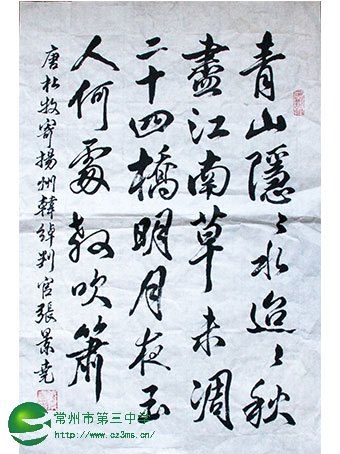 青山隱〻水迢〻秋
盡江南草未凋
二十四橋明月夜玉
人何處教吹簫
唐杜牧寄揚州韓綽判官張景尧
常州市第三中学
http://www.cz3ms.cn/